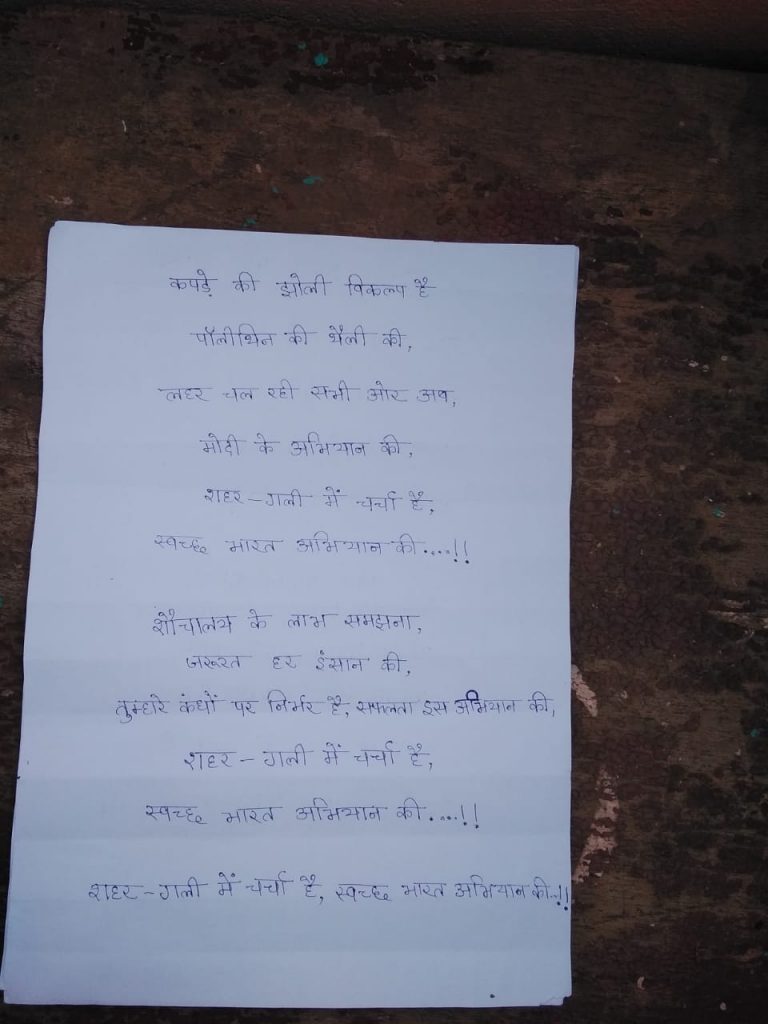 कपड़े की झोली विकल्प है
पॉलीथिन की थैली की,
लहर चल रही सभी ओर अब,
मोदी के अभियान की,
शहर - गली में चर्चा है,
स्वच्छ भारत अभियान की....!!
शौचालय के लाभ समझना,
जरूरत हर इंसान की,
तुम्हारे कंधों पर निर्भर है, सफलता इस अभियान की,
शहर - गली में चर्चा है,
स्वच्छ भारत अभियान की....!!
शहर - गली में चर्चा है, स्वच्छ भारत अभियान की..!!